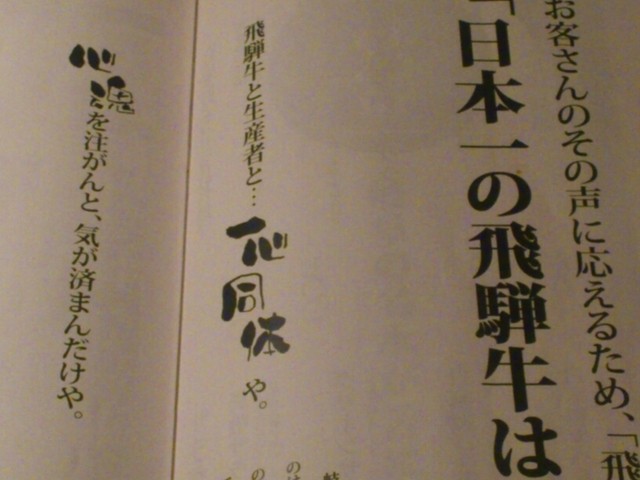 お客さんのその声に応えるため、「飛
「日本一の飛騨牛は
飛騨牛と生産者と…
一心
同
体
や。
心
魂を注がんと、気が済まんだけや。